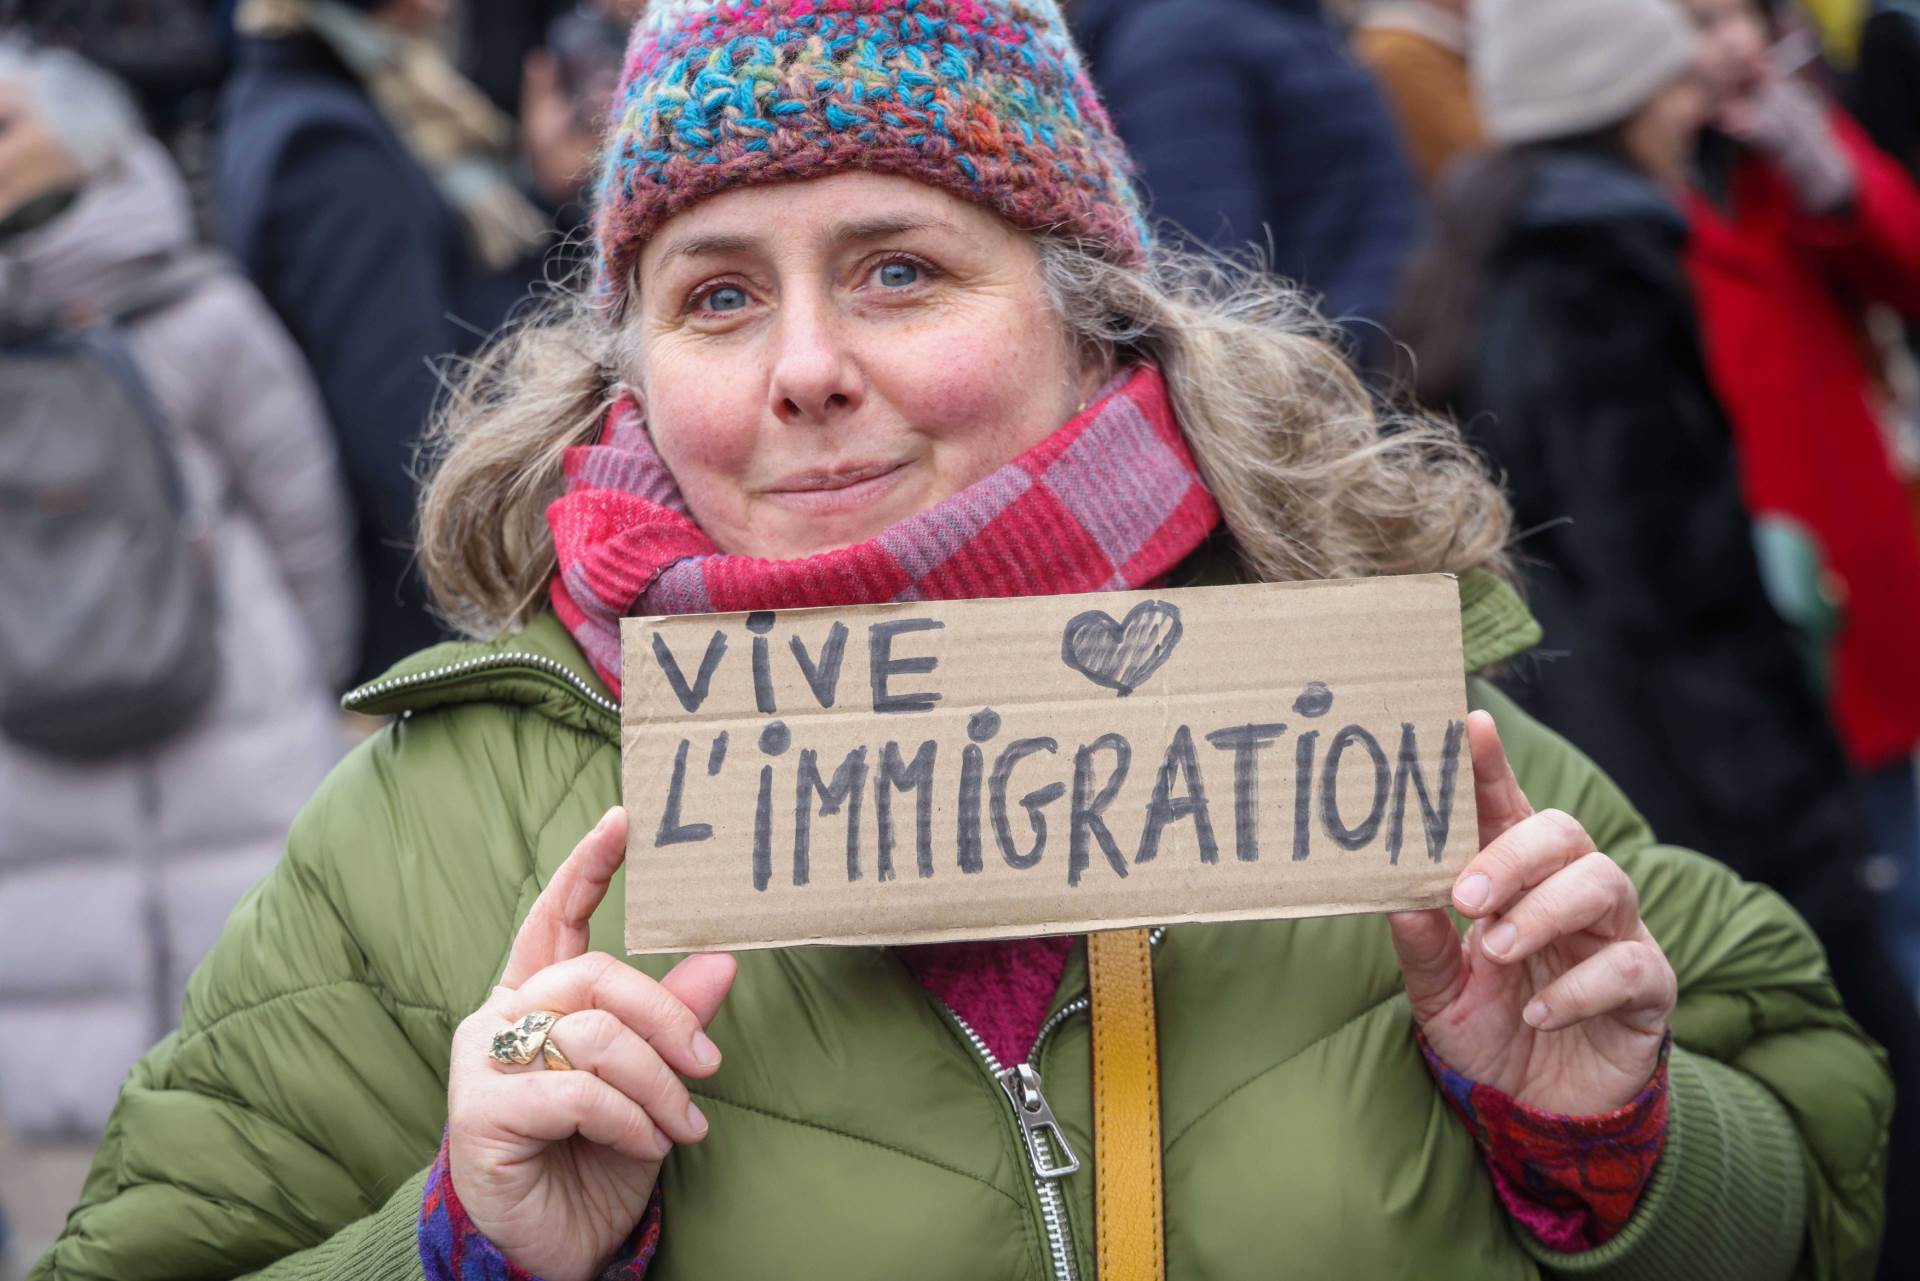 ViVE
L'iMMiGRATiON